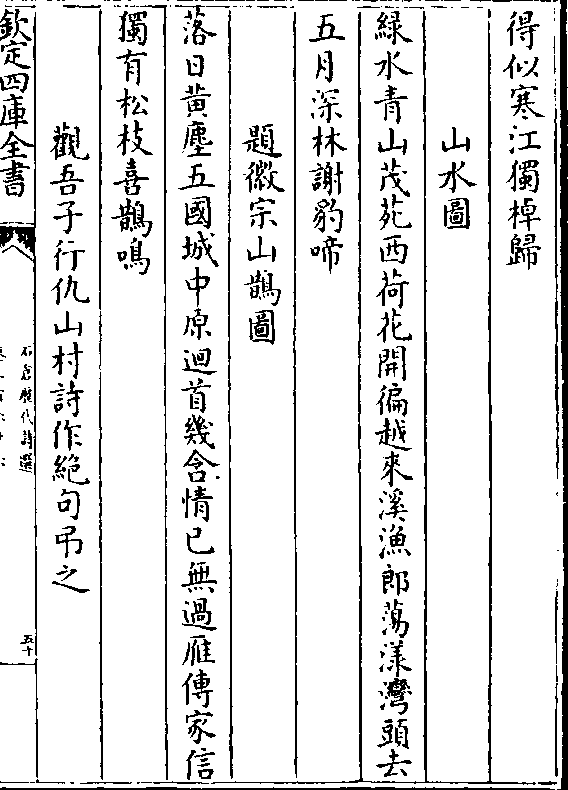 得似寒江獨棹歸
山水圖
綠水青山茂苑西荷花開偏越來溪漁郎蕩漾灣頭去
五月深林謝豹啼
題徽宗山鵲圖
落日黃塵五國城中原迴首幾含情已無過雁傳家信
獨有松枝喜鵲鳴
觀吾子行仇山村詩作絕句弔之
欽定四庫全書
石倉歷代詩選
五十